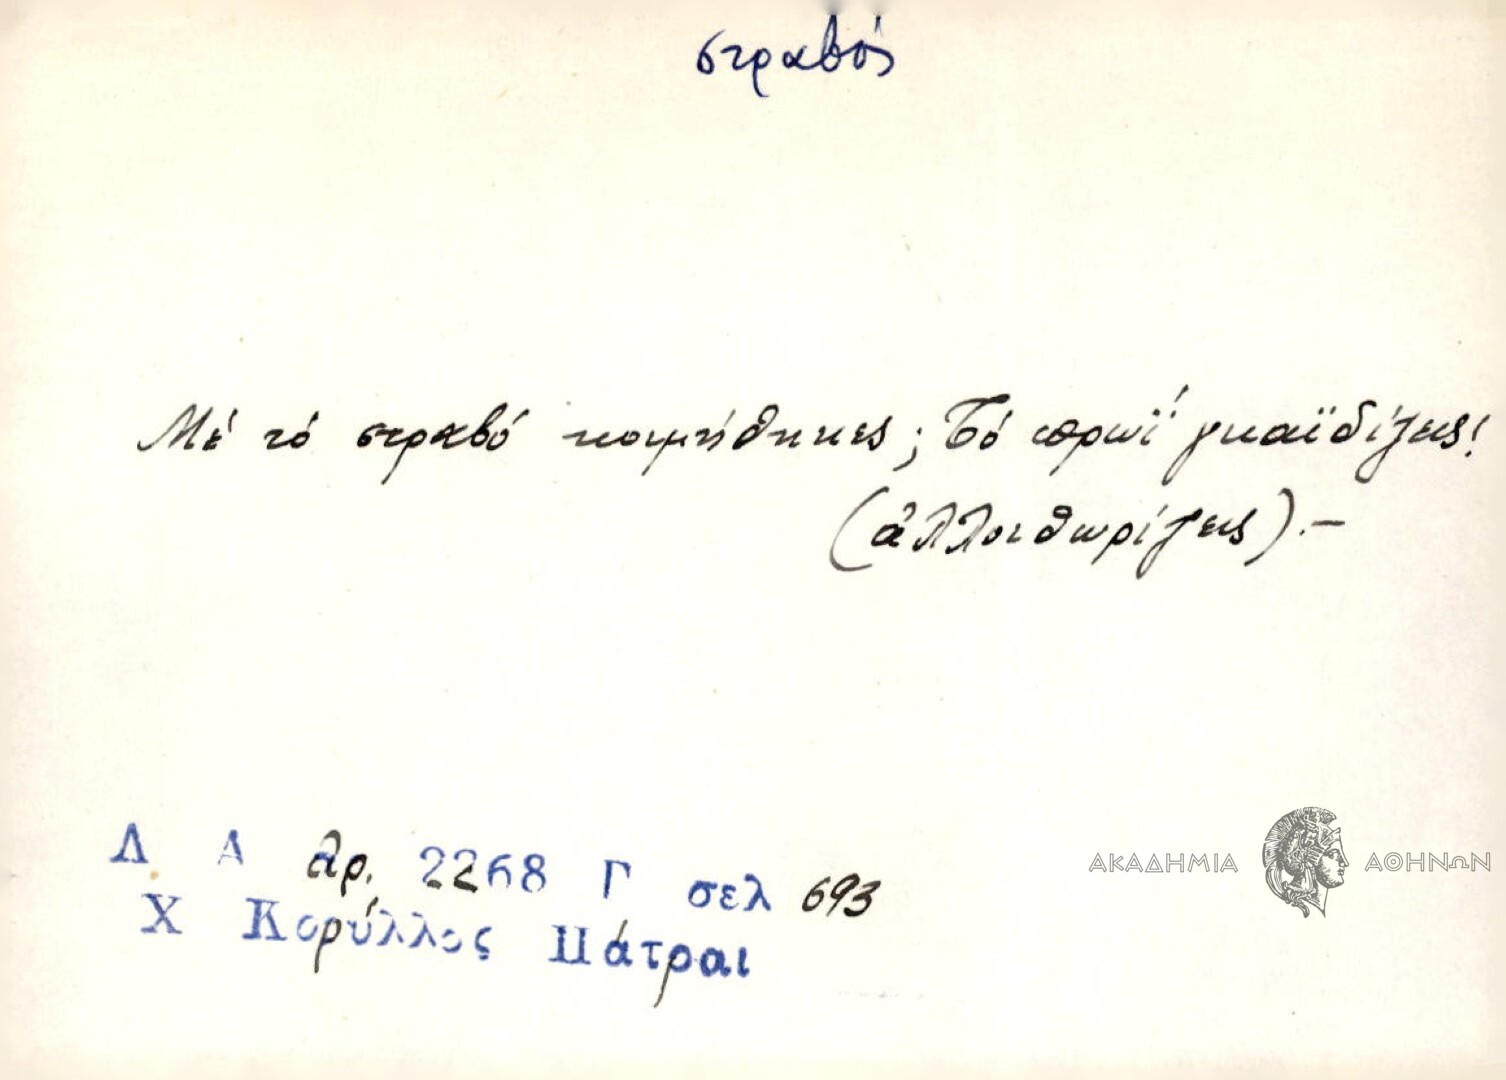 στραβός
Μέ τό στραβό κοιμήθηκες; Τό πρωΐ γκαϊδίζεις!
(ἀλλοιθωρίζεις).-
Λ Α ἀρ. 2268 Γ σελ 693
Χ Κορύλλος Πάτραι
ΑΚΑΔΗΜΙΑ ΑΘΗΝΩΝ